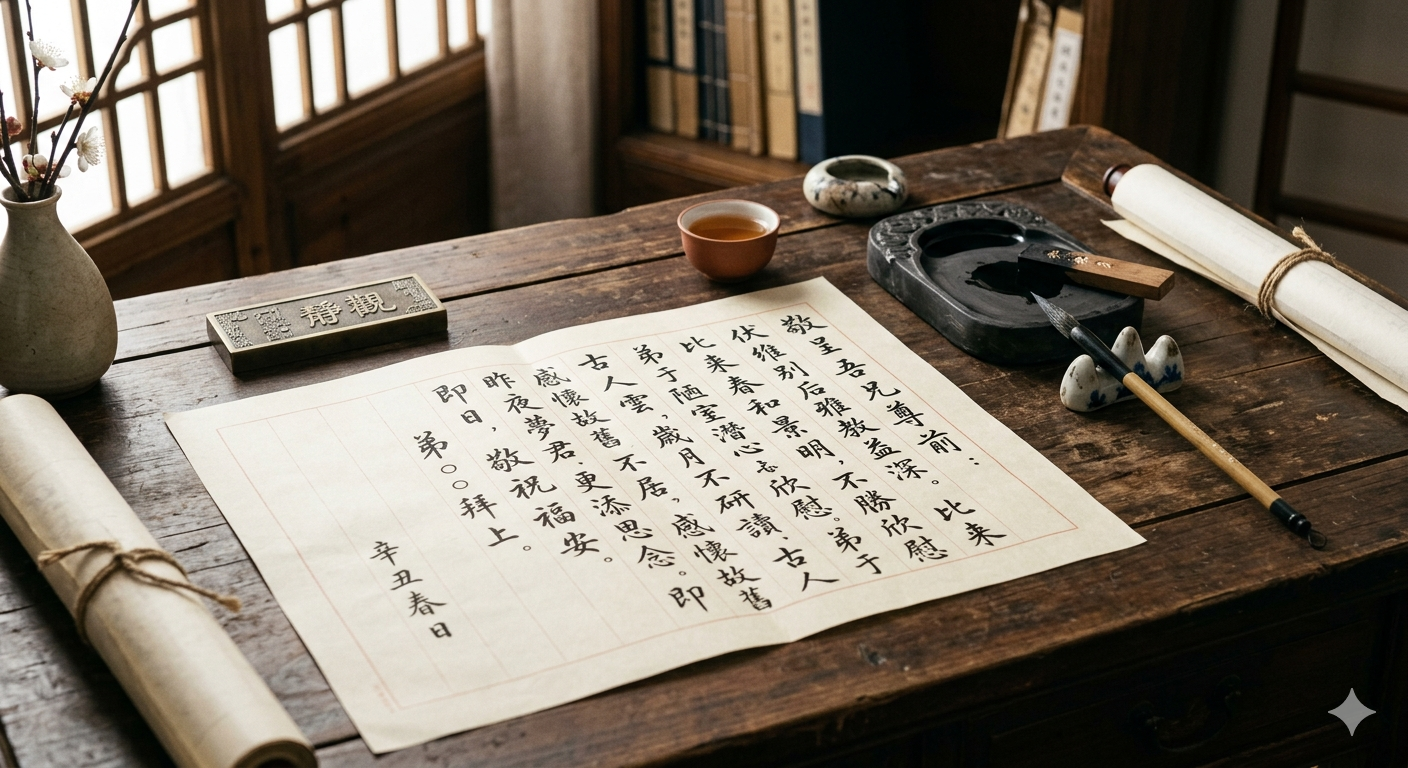 靜觀
敬呈吾兄尊前：
伏維别后雅教益深。比来
比来春和景明，不勝欣慰
弟于陋室潜心亦欣慰。弟于
古人雲，歲月不研讀，古人
感懷故舊不居，感懷故舊
昨夜夢君更添思念。即
即日，敬祝福安。
弟○○拜上。
辛丑春日